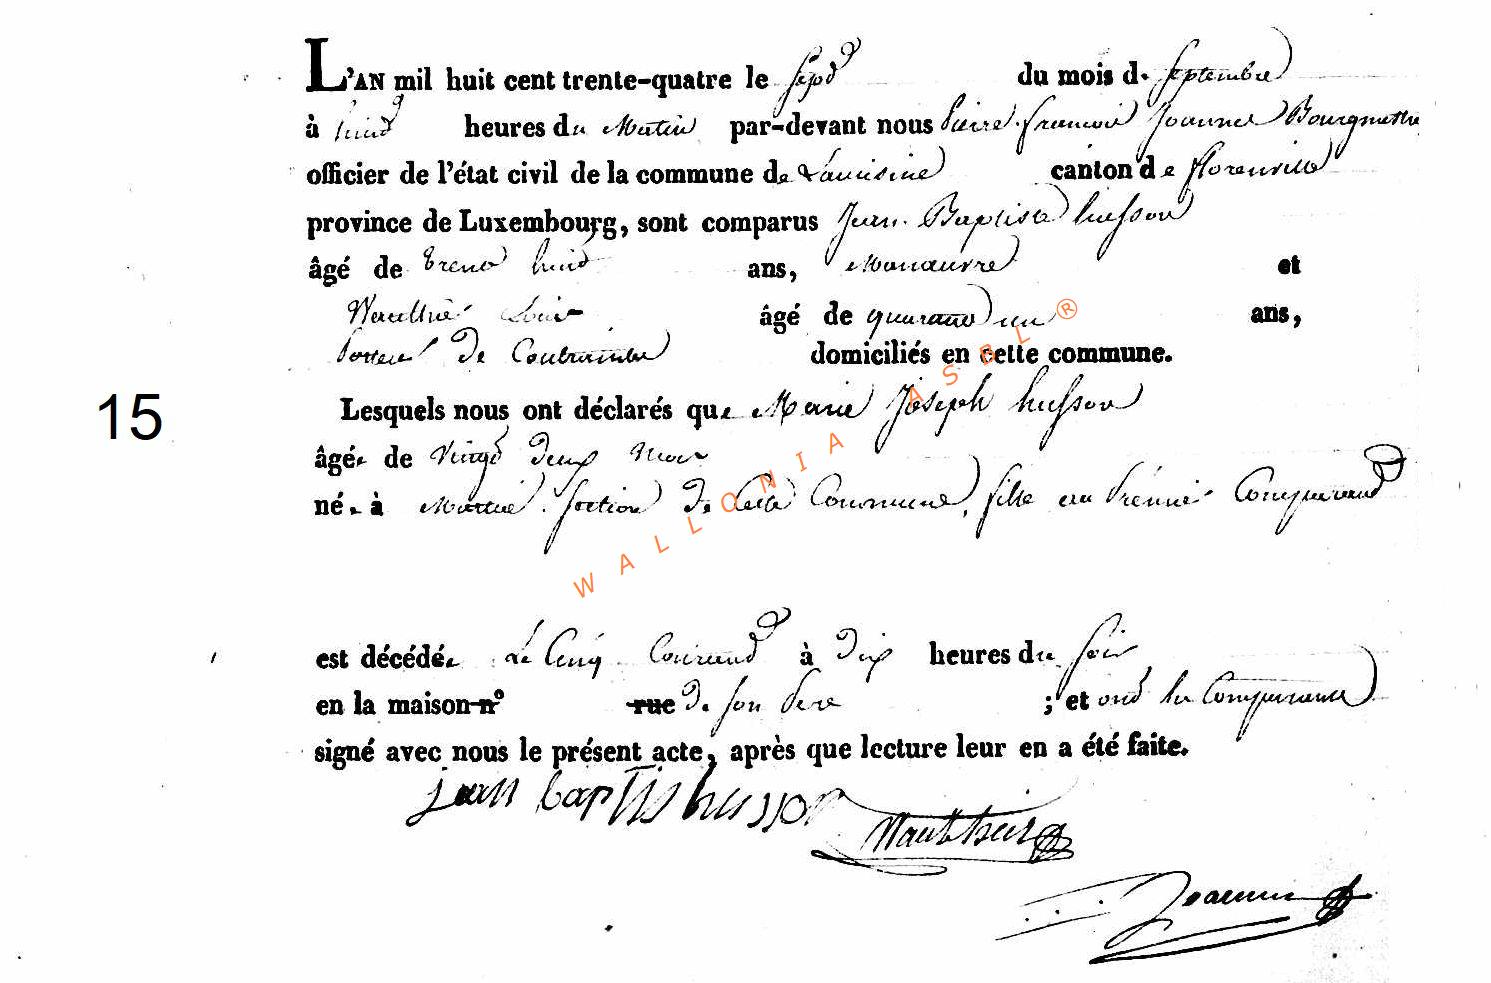 L'AN mil huit cent trente-quatre le sept du mois de Septembre
à huit heures du Matin par-devant nous Pierre francois Joannes Bourgmestre
officier de l'état civil de la commune de canton de florenville
province de Luxembourg, sont comparus Jean Baptiste husson
âgé de trente huit ans, Manoeuvre et
Wauthier Louis âgé de quarante un ans,
de domiciliés en cette commune.
15
Lesquels nous ont déclarés que Marie Joseph husson
âgée de Vingt deux Mois
née à Martué section de Cette Commune, fille au prémier Comparant
est décédée Le Cinq Courant à dix heures du Soir
en la maison n° rue de son Pere ; et ont les Comparants
signé avec nous le présent acte, après que lecture leur en a été faite.
jean baptis husson
Wauthier
Joannes
WALLONIA ASBL ®